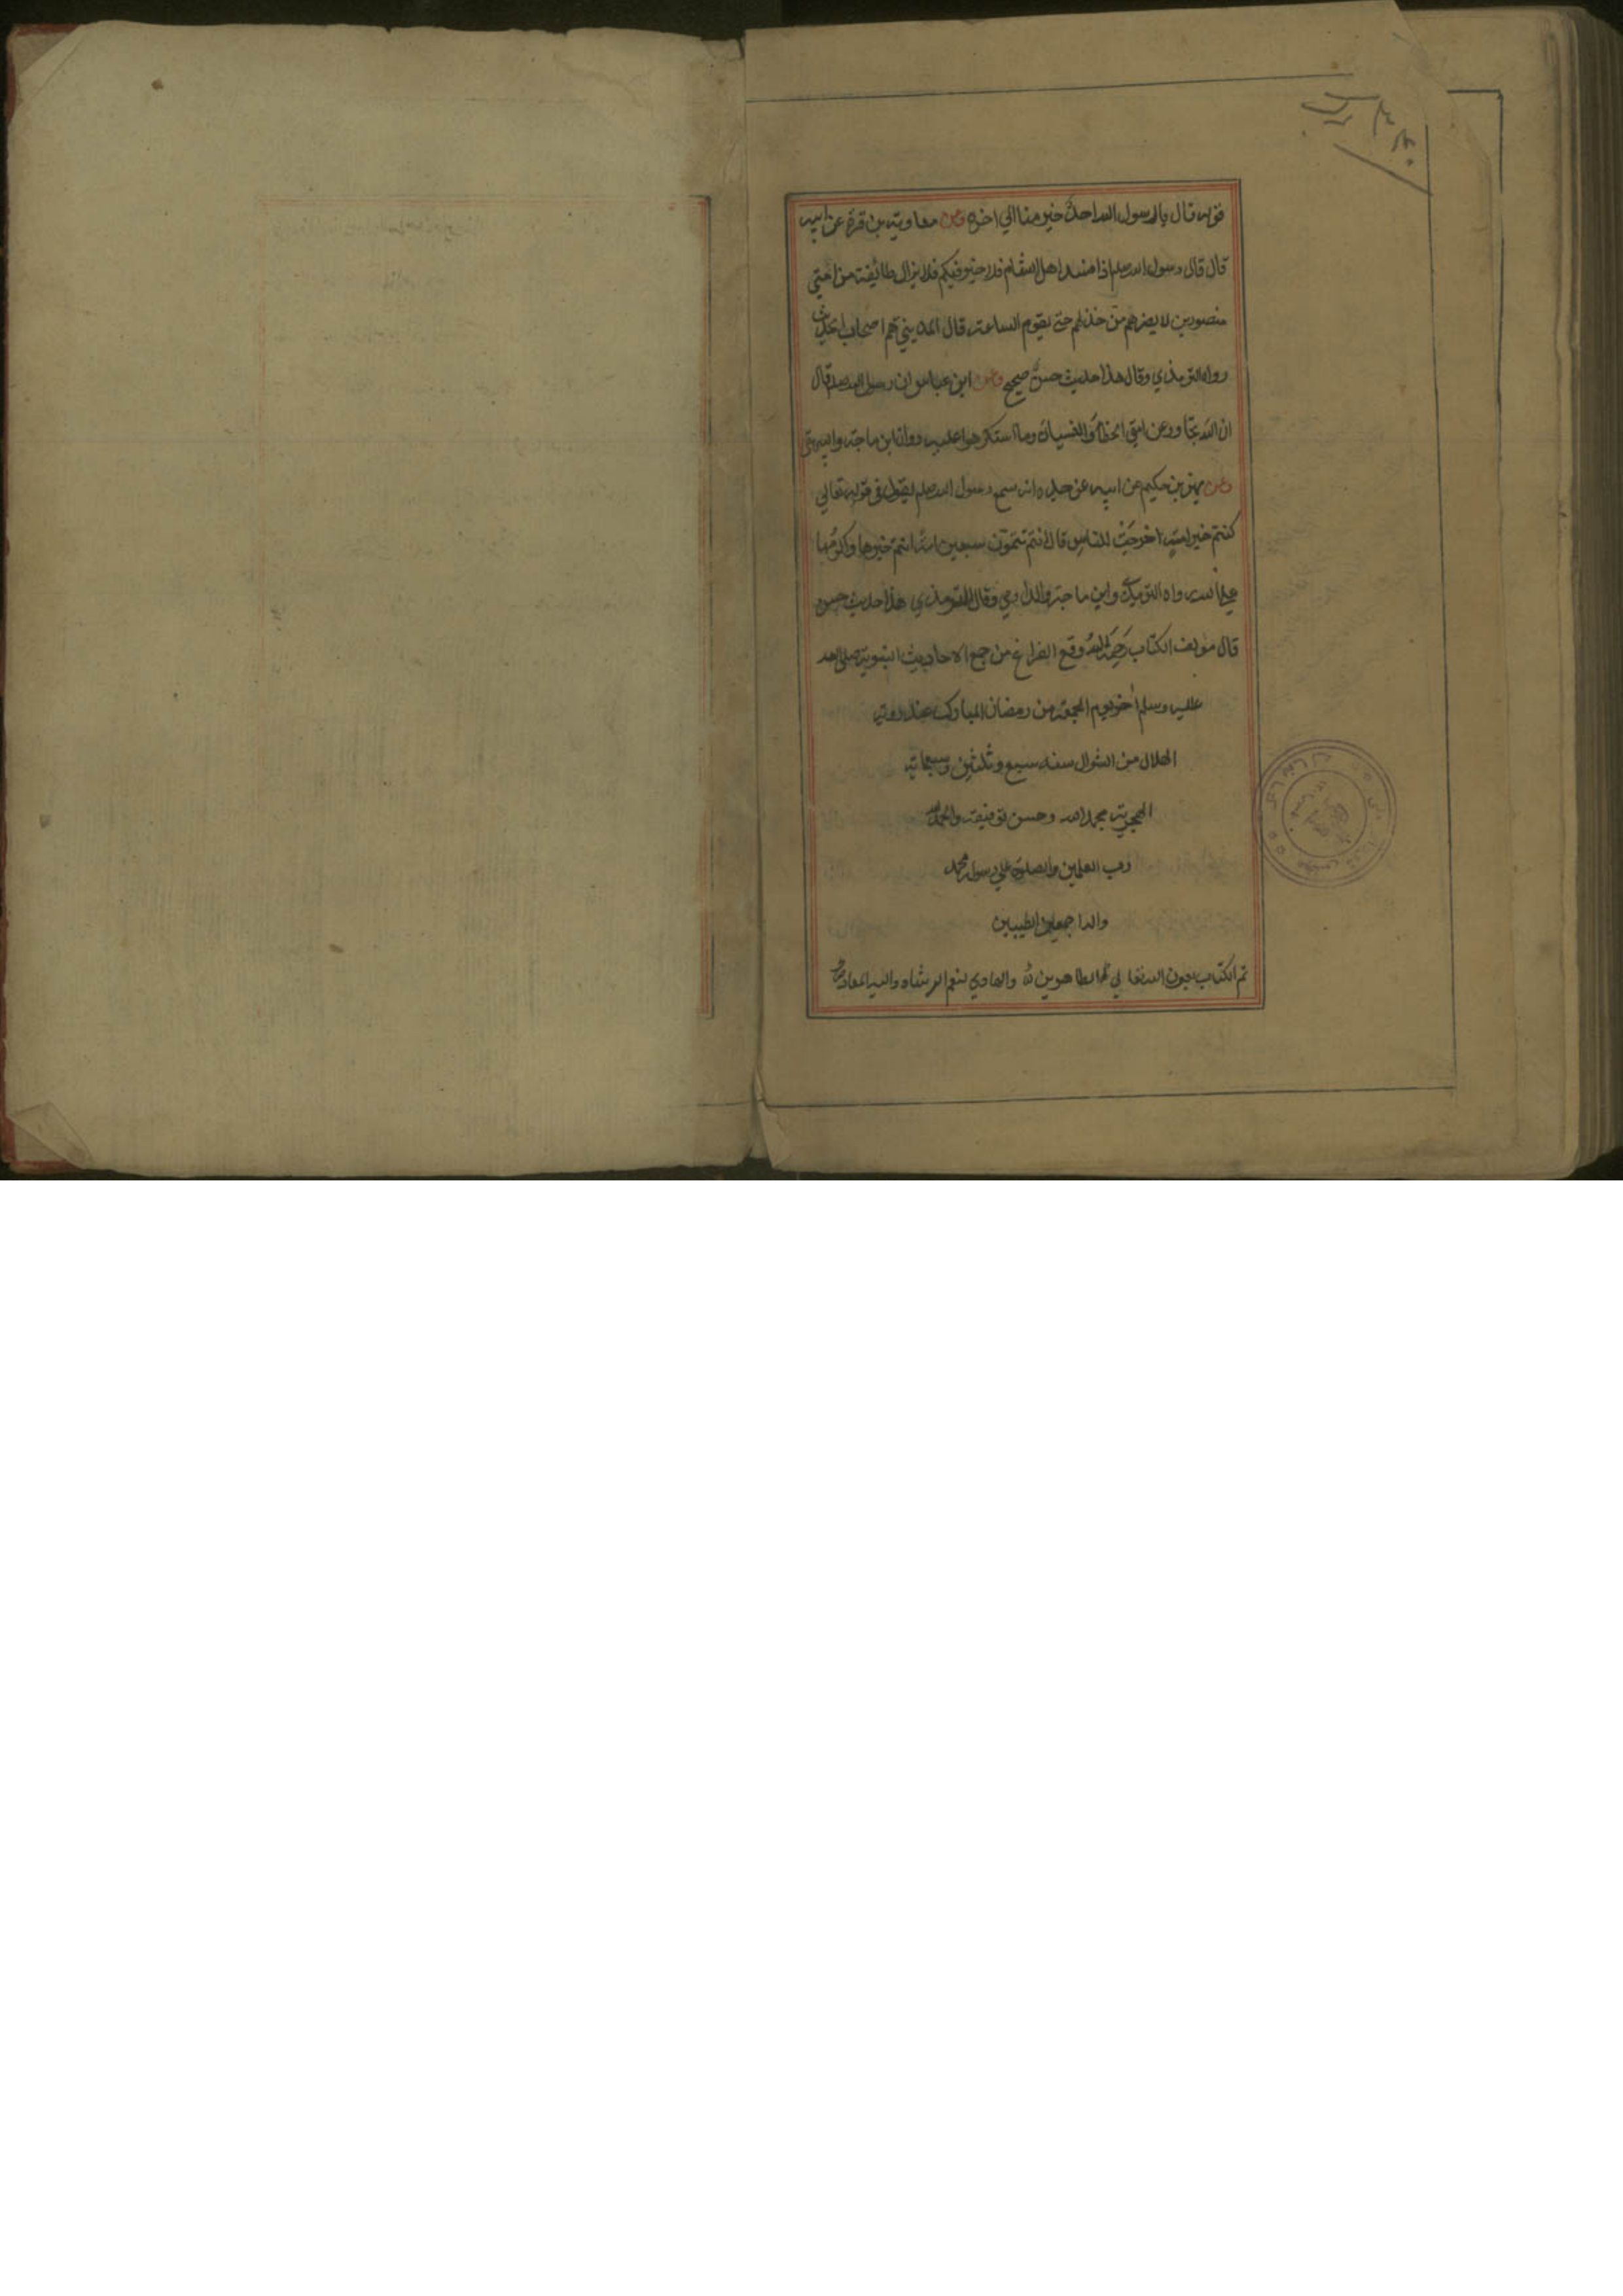 قوله قال يا رسول الله احد خير منا الي اخره وعن معاوية بن قرة عن ابيه
قال قال رسول الله صلعم اذا فسد اهل الشام فلا خير فيكم فلا يزال طائفة من امتي
منصورين لا يضرهم من خذلهم حتي يقوم الساعة قال المديني هم اصحاب الحديث
رواه الترمذي وقال هذا حديث حسن صحيح وعن ابن عباس ان رسول الله صلعم قال
ان الله تجاوز عن امتي الخطأ والنسيان وما استكرهوا عليه رواه ابن ماجة والبيهقي
وعن بهز بن حكيم عن ابيه عن جده انه سمع رسول الله صلعم يقول في قوله تعالي
كنتم خير امة اخرجت للناس قال انتم تتمون سبعين امة انتم خيرها واكرمها
علي الله رواه الترمذي وابن ماجة والدارمي وقال الترمذي هذا حديث حسن
قال مولف الكتاب رحمه الله وقع الفراغ من جمع الاحاديث النبوية صلي الله
عليه وسلم اخر يوم الجمعة من رمضان المبارك عند روية
الهلال من الشوال سنه سبع وثلثين وسبعماية
الهجرية بحمد الله وحسن توفيقه والحمد لله
رب العلمين والصلوة علي رسوله محمد
واله اجمعين الطيبين
تم الكتاب بعون الله تعالي الطاهرين والهادي لنعم الرشاد واليه المعاد